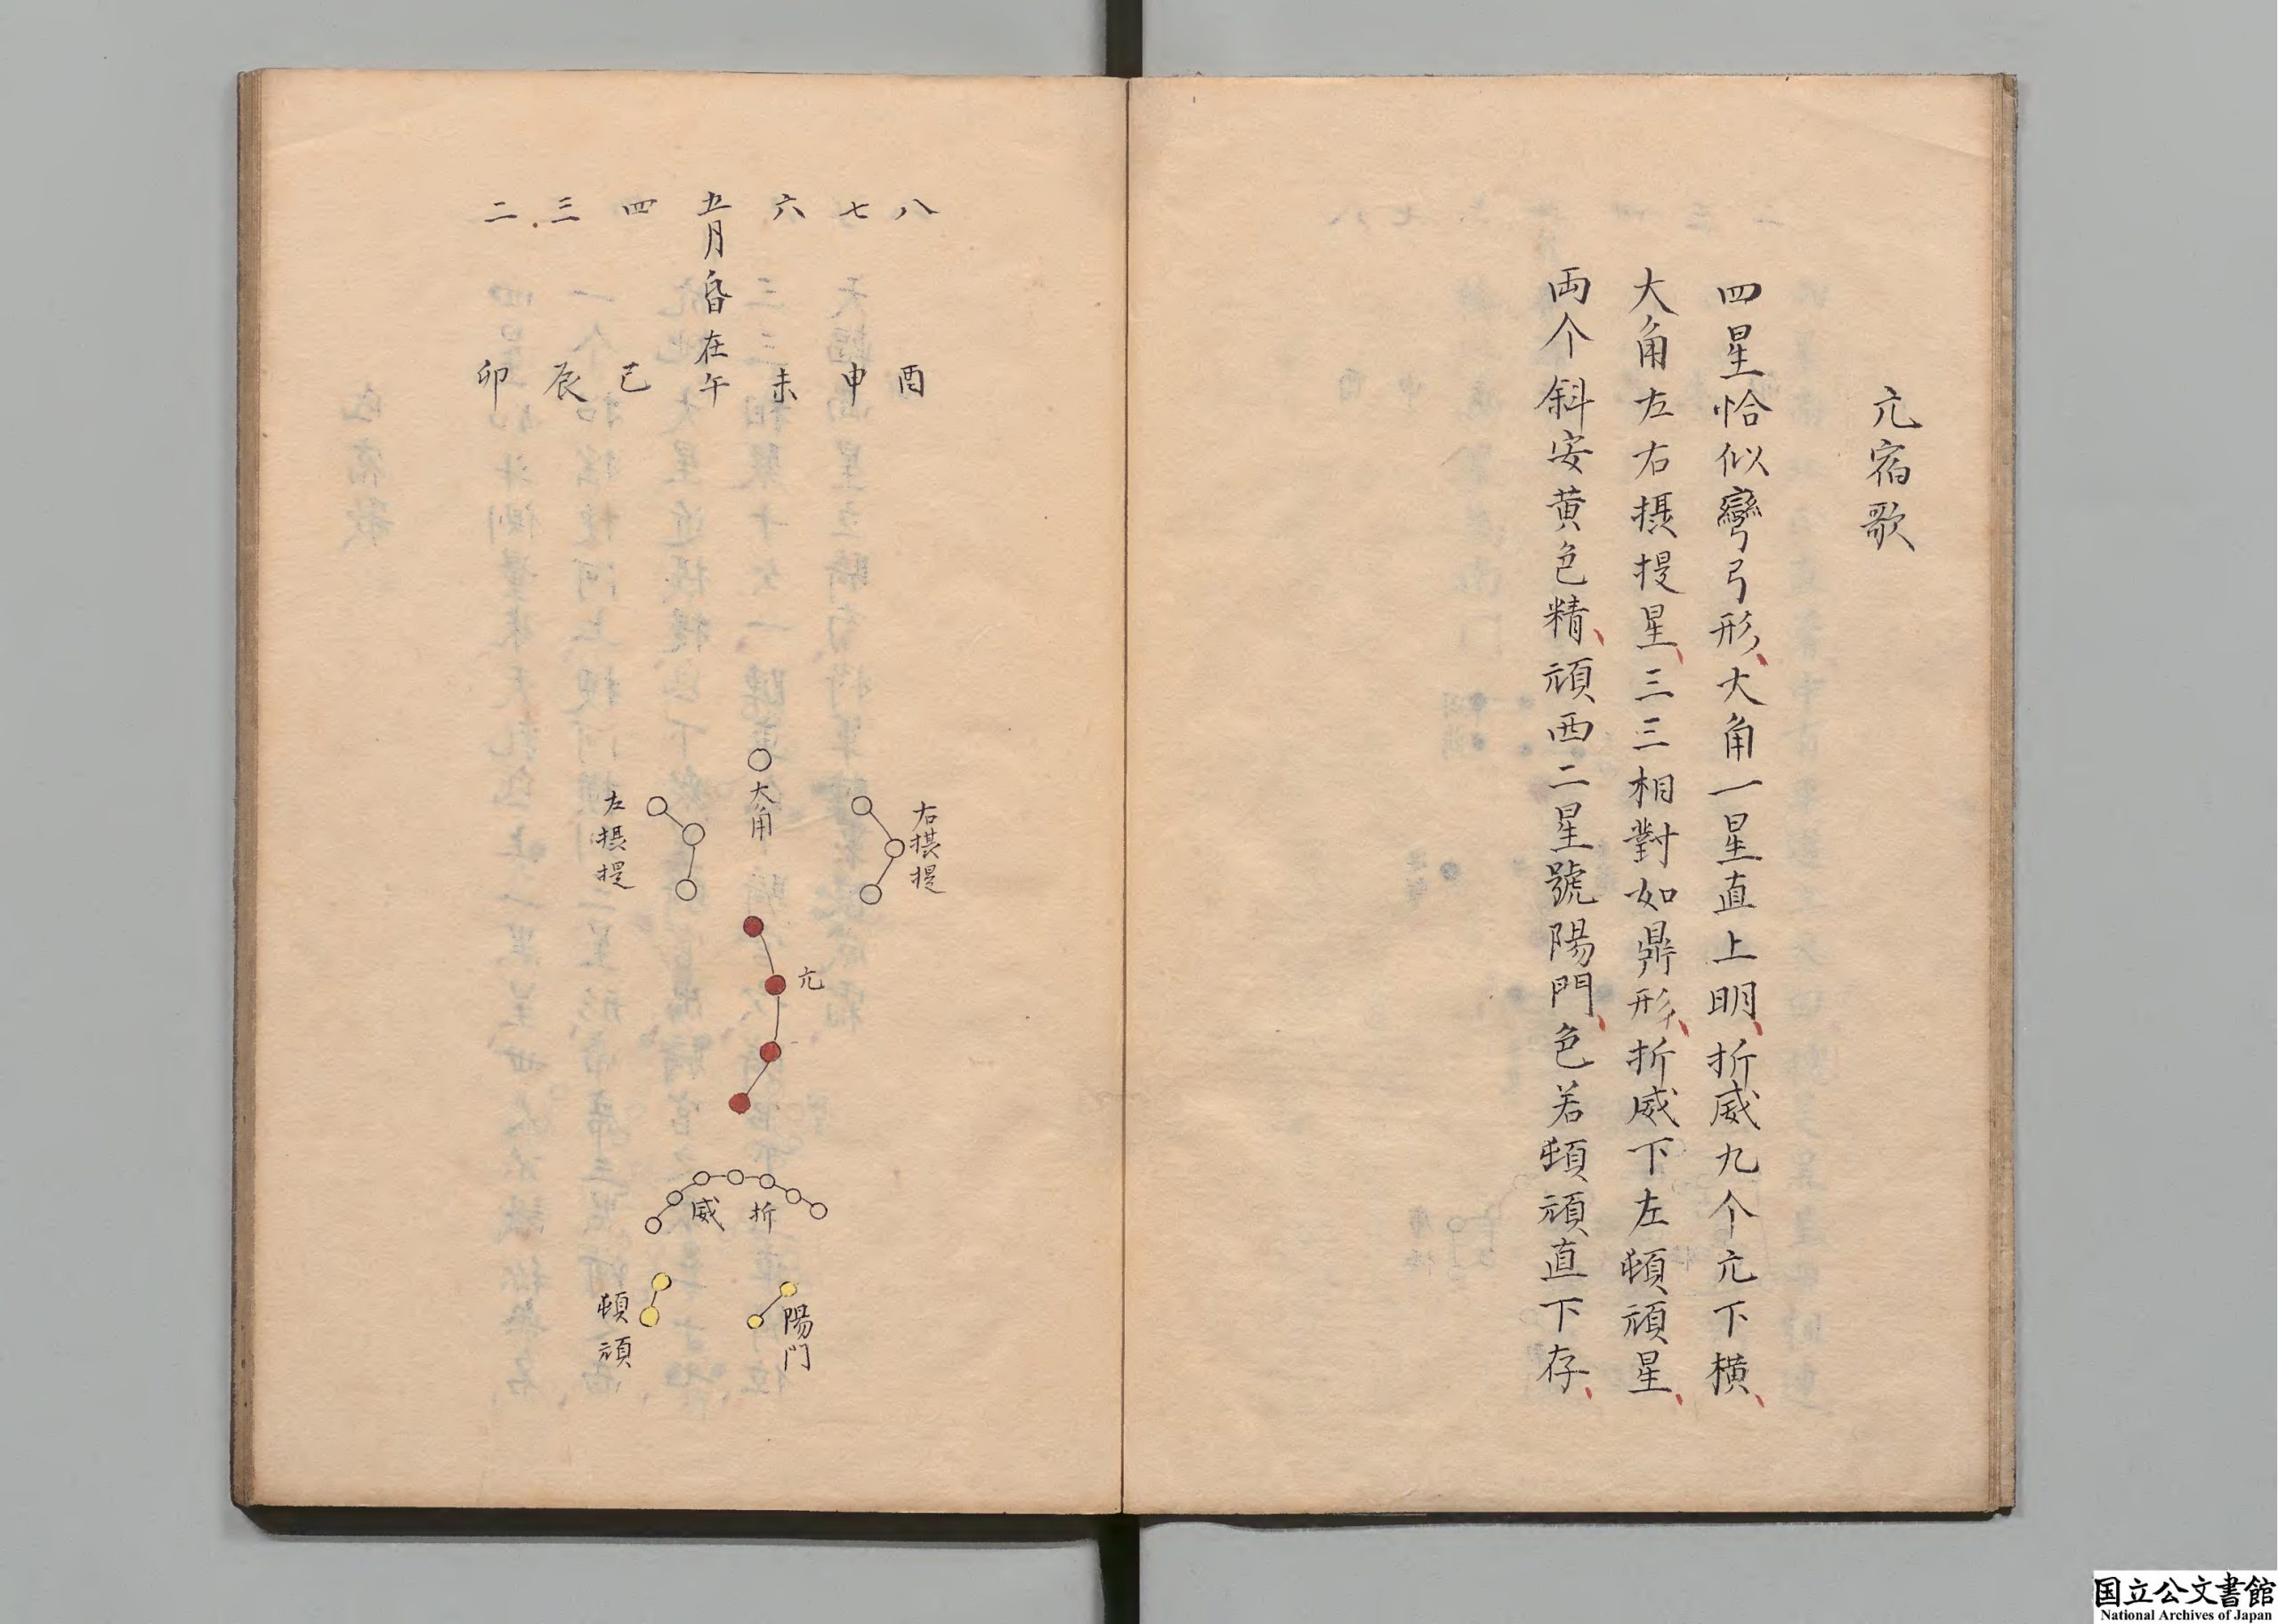 亢宿歌
四星恰似彎弓形、大角一星直上明、折威九个亢下橫、
大角左右摂提星、三三相對如鼎形、折威下左頓頑星、
両个斜安黄色精、頑西二星號陽門、色若頓頑直下存、
八 七 六 五月昏在午 四 三 二
酉 申 未 巳 辰 卯
大角
右摂提
左摂提
亢
折威
陽門
頓頑
国立公文書館
National Archives of Japan